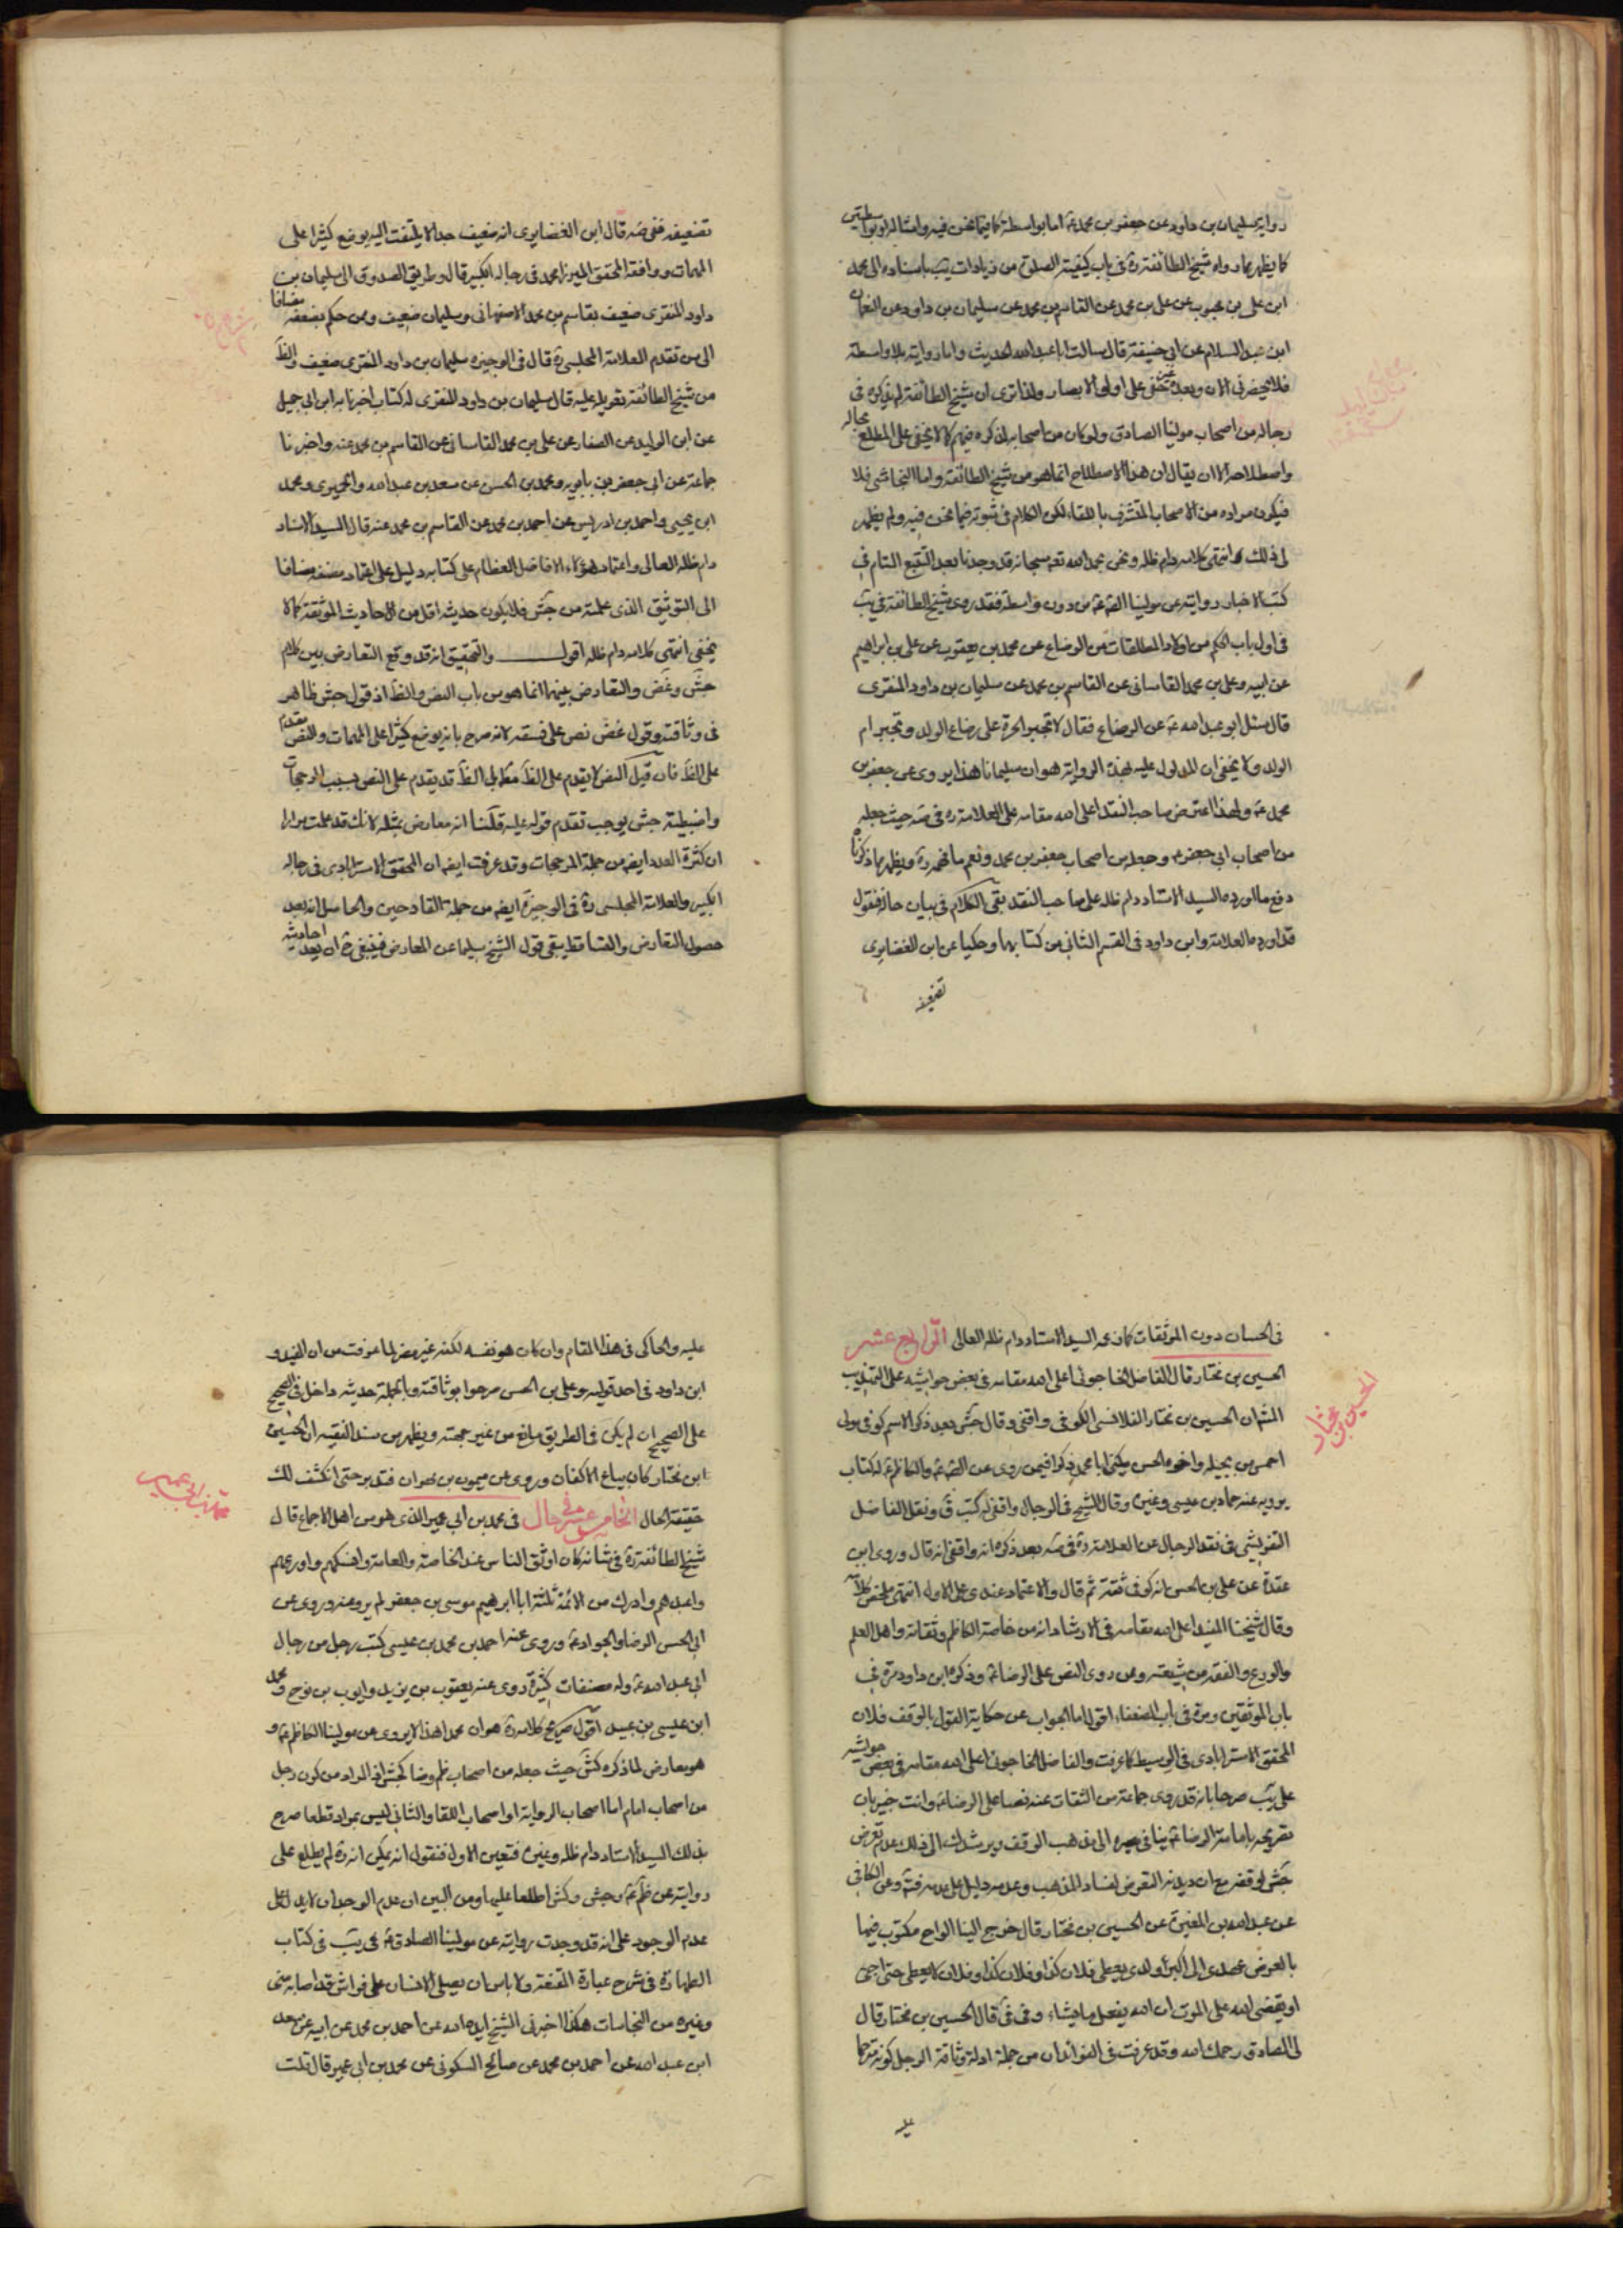 رواية سليمان بن داود عن جعفر بن محمد ع اما بواسطة كما فيما نحن فيه وامثاله او بواسطتين
كما يظهر مما رواه شيخ الطائفة ره في باب كيفية الصلوة من زيادات يب باسناده الى محمد
ابن علي بن محبوب عن علي بن محمد عن القاسم بن محمد عن سليمان بن داود عن النعمان
ابن عبد السلام عن ابي حنيفة قال سالت ابا عبد الله الحديث واما روايته بلا واسطة
فلا يحضرني الان وبعده غير مخفي على اولى الابصار ولذا ترى ان شيخ الطائفة لم يذكره في
رجاله من اصحاب مولينا الصادق ولو كان من اصحابه لذكره فيهم كما لا يخفى على المطلع بحاله
واصطلاحه الا ان يقال ان هذا الاصطلاح انما هو من شيخ الطائفة واما النجاشي فلا
فيكون مراده من الاصحاب المتشرف باللقاء لكن الكلام في ثبوته فيما نحن فيه ولم يظهر
لي ذلك انتهى كلامه دام ظله ونحن بحمد الله تعه سبحانه قد وجدنا بعد التتبع التام في
كتب الاخبار روايته عن مولينا الصم ع من دون واسطة فقد روى شيخ الطائفة في يب
في اول باب الحكم من اولاد المطلقات من الرضاع عن محمد بن يعقوب عن علي بن ابراهيم
عن ابيه وعلي بن محمد القاساني عن القاسم بن محمد عن سليمان بن داود المنقري
قال سئل ابو عبد الله ع عن الرضاع فقال لا تجبر الحرة على رضاع الولد وتجبر ام
الولد ولا يخفى ان المدلول عليه بهذه الرواية هو ان سليمانا هذا يروى عن جعفر بن
محمد ع ولهذا اعترض صاحب النقد اعلى الله مقامه على العلامة ره في صه حيث جعله
من اصحاب ابي جعفر ع وجعله من اصحاب جعفر بن محمد ونعم ما فهمه ره ويظهر بما ذكرنا
دفع ما اورده السيد الاستاد دام ظله على صاحب النقد بقي الكلام في بيان حاله فنقول
قد اورده العلامة وابن داود في القسم الثاني من كتابهما وحكيا عن ابن الغضايري
تضعيفه
تضعيفه ففي صه قال ابن الغضايري انه ضعيف جدا لا يلتفت اليه يوضع كثيرا على
المهمات ووافقه المحقق الميرزا محمد في رجاله الكبير قال وطريق الصدوق الى سليمان بن
داود المنقري ضعيف بقاسم بن محمد الاصفهاني وسليمان ضعيف وممن حكم بضعفه مضافا
الى من تقدم العلامة المجلسي ره قال في الوجيزه سليمان بن داود المنقري ضعيف والظ
من شيخ الطائفة تعويله عليه قال سليمان بن داود المنقري له كتاب اخبرنا به ابن ابي جيد
عن ابن الوليد عن الصفار عن علي بن محمد القاساني عن القاسم بن محمد عنه واخبرنا
جماعة عن ابي جعفر بن بابويه ومحمد بن الحسن عن سعد بن عبد الله والحميري ومحمد
ابن يحيى واحمد بن ادريس عن احمد بن محمد عن القاسم بن محمد عنه قال السيد الاستاد
دام ظله العالى واعتماد هؤلاء الافاضل العظام على كتابه دليل على اعتماد مصنفه مضافا
الى التوثيق الذي علمته من جش فلا يكون حديثه اقل من الاحاديث الموثقة كما لا
يخفى انتهى كلامه دام ظله اقول والتحقيق انه قد وقع التعارض بين كلام
جش وغض والتعارض بينهما انما هو من باب النص والظ اذ قول جش ظاهر
في وثاقته وقول غض نص على فسقه لانه صرح بانه يوضع كثيرا على المهمات والنص مقدم
على الظ فان قيل النص لا يقدم على الظ مطلقا بل الظ قد يقدم على النص بسبب المرجحات
واضبطية جش يوجب تقدم قوله عليه قلنا انه معارض بمثله لانك قد علمت مرارا
ان كثرة العدد ايضه من جملة المرجحات وقد عرفت ايضه ان المحقق الاسترابادي في رجاله
الكبير والعلامة المجلسي ره في الوجيزة ايضه من جملة القادحين والحاصل انه بعد
حصول التعارض والتساقط يبقى قول الشيخ سليما عن المعارض فينبغي ح ان يعد احاديثه
في الحسان دون الموثقات كما زعمه السيد الاستاد دام ظله العالى الرابع عشر
الحسين بن مختار قال الفاضل الخاجوئى اعلى الله مقامه في بعض حواشيه على التهذيب
الحسين بن مختار
المش ان الحسين بن مختار القلانسي الكوفي واقفي وقال جش بعد ذكر الاسم كوفي مولى
احمس من بجيله واخوه الحسن يكنى ابا محمد ذكرا فيمن روى عن الصم ع والكاظم ع له كتاب
يرويه عنه حماد بن عيسى وغيره وقال الشيخ في الرجال واقفي له كتب ق ونقل الفاضل
التفريشي في نقد الرجال عن العلامة ره في صه بعد ذكره انه واقفي انه قال وروى ابن
عقدة عن علي بن الحسن انه كوفي ثقة ثم قال والاعتماد عندى على الاول انتهى ملخص كلامه
وقال شيخنا المفيد اعلى الله مقامه في الارشاد انه من خاصة الكاظم وثقاته واهل العلم
والورع والفقه من شيعته وممن روى النص على الرضا ع وذكره ابن داود مرة في
باب الموثقين ومرة في باب الضعفاء اقول اما الجواب عن حكاية القول بالوقف فلان
المحقق الاسترابادي في الوسيط كما عرفت والفاضل الخاجوئى اعلى الله مقامه في بعض حواشيه
على يب صرحا بانه قد روى جماعة من الثقات عنه نصا على الرضا ع وانت خبير بان
تصريحه بامامة الرضا ع ينافي ميله الى مذهب الوقف ويرشدك الى ذلك عدم تعرض
جش لوقفه مع ان ديدنه التعرض لفساد المذهب وعدمه دليل على عدمه فته وعن الكافي
عن عبد الله بن المغيرة عن الحسين بن مختار قال خرج الينا الواح مكتوب فيها
بالعرض عهدى الى اكبر ولدى يعطى فلان كذا وفلان كذا وفلان لا يعطى حتى اجئ
او يقضى الله على الموت ان الله يفعل ما يشاء وفي في قال الحسين بن مختار قال
لي الصادق رحمك الله وقد عرفت في الفوائد ان من جملة ادلة وثاقة الرجل كونه مترحما
عليه
عليه والحاكى في هذا المقام وان كان هو نفسه لكنه غير مضر لما عرفت من ان المفيد و
ابن داود في احد قوليه وعلي بن الحسن صرحوا بوثاقته وبالجملة حديثه داخل في الصحيح
على الصحيح ان لم يكن في الطريق مانع من غير جهته ويظهر من سند الفقيه ان الحسين
ابن مختار كان بياع الاكفان وروى عن ميمون بن مهران فتدبر حتى انكشف لك
حقيقة الحال الخامس عشر في حال في محمد بن ابي عمير الذى هو من اهل الاجماع قال
محمد بن ابي عمير
شيخ الطائفة ره في شانه كان اوثق الناس عند الخاصة والعامة وانسكهم واورعهم
واعبدهم وادرك من الائمة ثلثة ابا ابرهيم موسى بن جعفر لم يرو عنه وروى عن
ابي الحسن الرضا والجواد ع وروى عنه احمد بن محمد بن عيسى كتب رجل من رجال
ابي عبد الله ع وله مصنفات كثيرة روى عنه يعقوب بن يزيد وايوب بن نوح ومحمد
ابن عيسى بن عبيد اقول صريح كلامه ره هو ان محمدا هذا لا يروى عن مولينا الكاظم ع و
هو معارض لما ذكره كش حيث جعله من اصحاب ظم وضا كجش اذ المراد من كون رجل
من اصحاب امام اما اصحاب الرواية او اصحاب اللقا والثاني ليس بمراد قطعا صرح
بذلك السيد الاستاد دام ظله وغيره فتعين الاول فنقول انه يمكن انه ره لم يطلع على
روايته عن ظم ع وجش وكش اطلعا عليها ومن البين ان عدم الوجدان لا يدل على
عدم الوجود على انه قد وجدت روايته عن مولينا الصادق ع في يب في كتاب
الطهارة في شرح عبارة المقنعة ولا باس ان يصلى الانسان على فراش قد اصابه منى
وغيره من النجاسات هكذا اخبرنى الشيخ ايده الله عن احمد بن محمد عن ابيه عن سعد
ابن عبد الله عن احمد بن محمد عن صالح السكوني عن محمد بن ابي عمير قال قلت